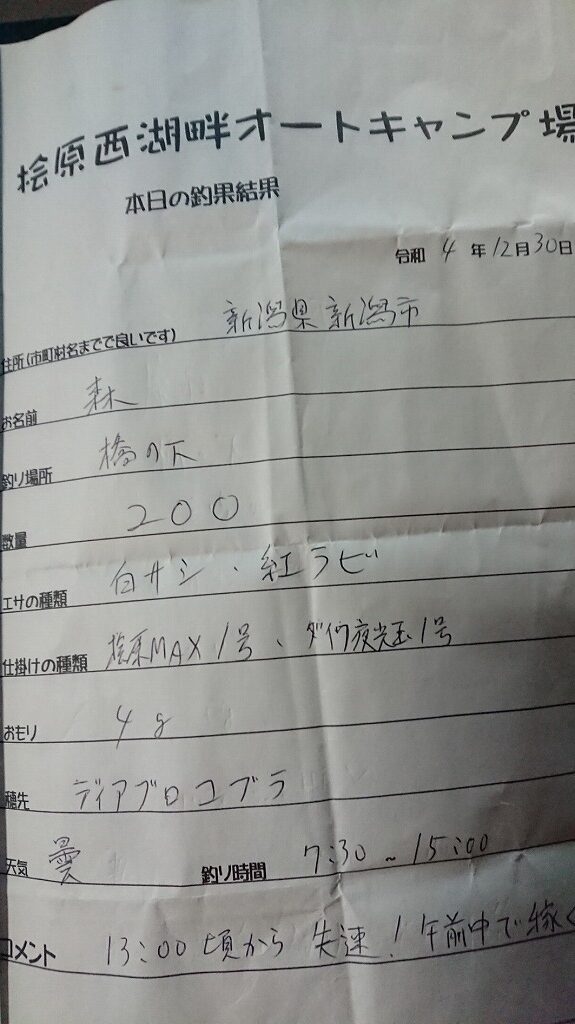 桧原西湖畔オートキャンプ場
本日の釣果結果
令和 4 年 12月 30日
住所(市町村名までで良いです) 新潟県 新潟市
お名前 森
釣り場所 橋の下
数量 200
エサの種類 白サシ・紅ラビ
仕掛けの種類 桧原MAX 1号、ダイワ夜光玉1号
おもり 4g
穂先 ディアブロ コブラ
天気 曇 釣り時間 7:30~15:00
コメント 13:00 頃から 失速！午前中で稼く